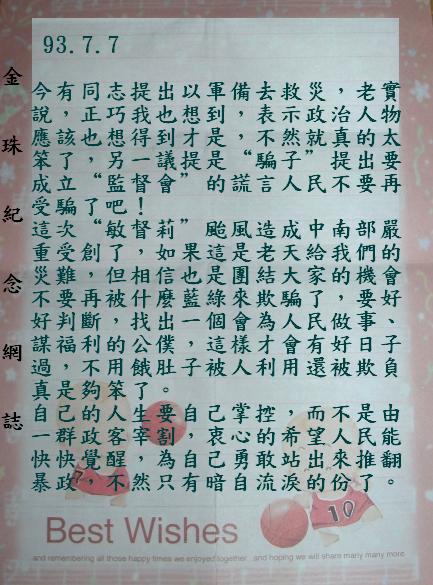 93.7.7
金珠紀念網誌
今有同志提出以軍備,去救災,老實
說,正巧我也想到,表示政治人物
應該也想得到才是,不然就真的太
笨了,另一提議是,“騙子”提出要
成立“監督會”的謊言,人民不要再
受騙了吧!
這次“敏督莉”颱風造成中南部嚴
重受創,如果這是老天給我們的
災難,但相信也是團結大家的機會
不要再被什麼藍綠來欺騙了,要好
好判斷,找出一個為人民做好事、
謀福利的公僕,這樣人才會有好日子
過,不用餓肚子被人利用還被欺負
真是夠笨了。
自己的人生要自己掌控,而不是由
一群政客宰割,衷心的希望人民能
快快覺醒,為自己勇敢站出來推翻
暴政,不然只有暗自流淚的份了。
10
Best Wishes
and remembering all those happy times we enjoyed together...and hoping we will share many many more